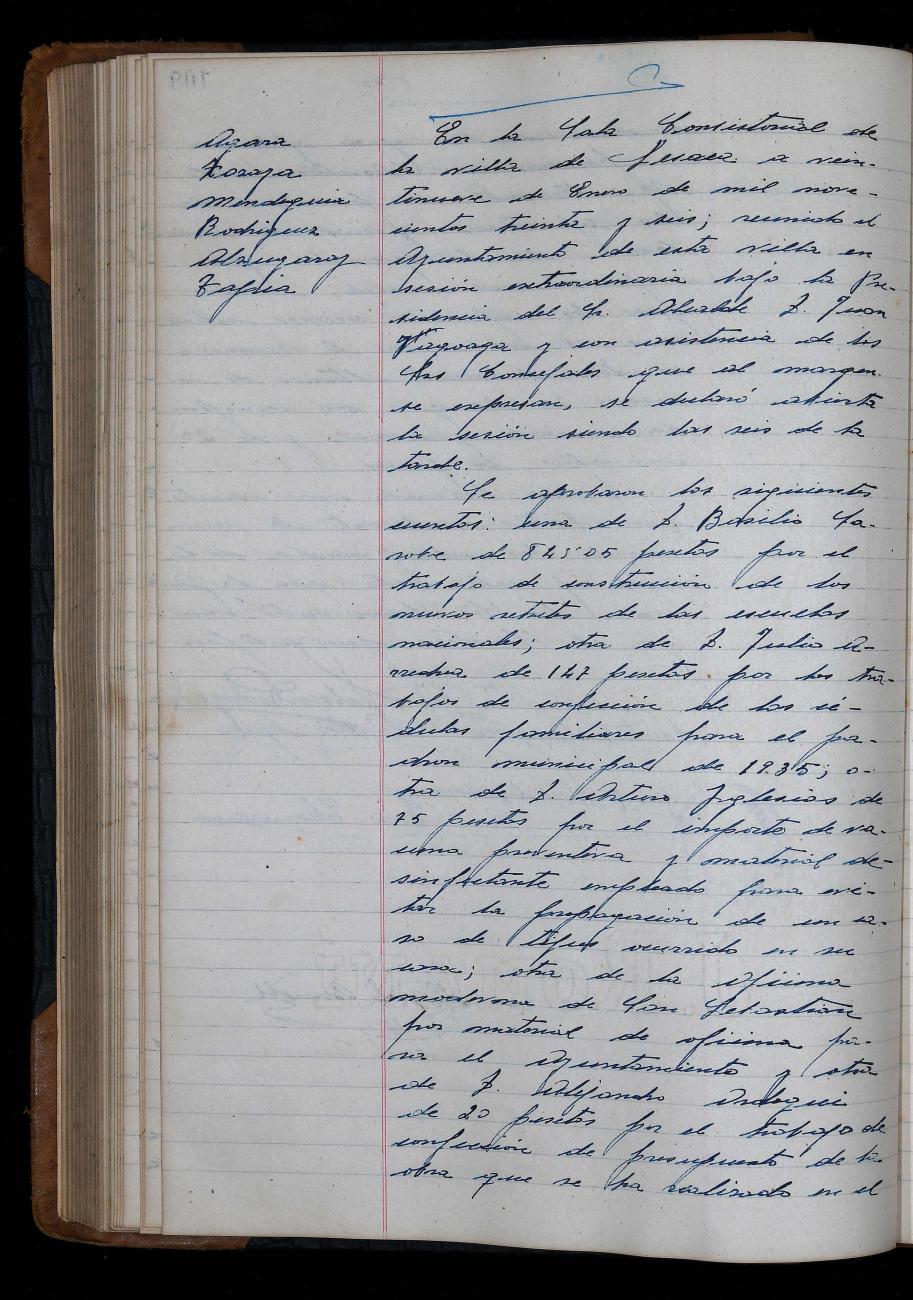 Agara
Lozaga
Mendeguia
Rodriguez
Alzugaray
Tapia
En la Sala Consistorial de
la villa de Lesaca a vein-
tinueve de Enero de mil nove-
cientos treinta y seis; reunido el
Ayuntamiento de esta villa en
sesión extraordinaria bajo la Pre-
sidencia del Sr. Alcalde D. Juan
y con asistencia de los
Sres Concejales que al margen
se expresan, se declaró abierta
la sesión siendo las seis de la
tarde.
Se aprobaron las siguientes
cuentas: una de D. Basilio Sa-
robe de 845'05 pesetas por el
trabajo de construcción de los
nuevos retretes de las escuelas
nacionales; otra de D. Julio A-
de 147 pesetas por los tra-
bajos de confección de las cé-
dulas familiares para el pa-
dron municipal de 1935; o-
tra de D. Arturo Iglesias de
75 pesetas por el importe de va-
cuna preventiva y material de-
sinfectante empleado para evi-
tar la propagación de un ca-
so de tifus ocurrido en su
casa; otra de la oficina
moderna de San Sebastian
por material de oficina pa-
ra el Ayuntamiento y otra
de D. Alejandro
de 20 pesetas por el trabajo de
confección de presupuesto de la
obra que se ha realizado en el